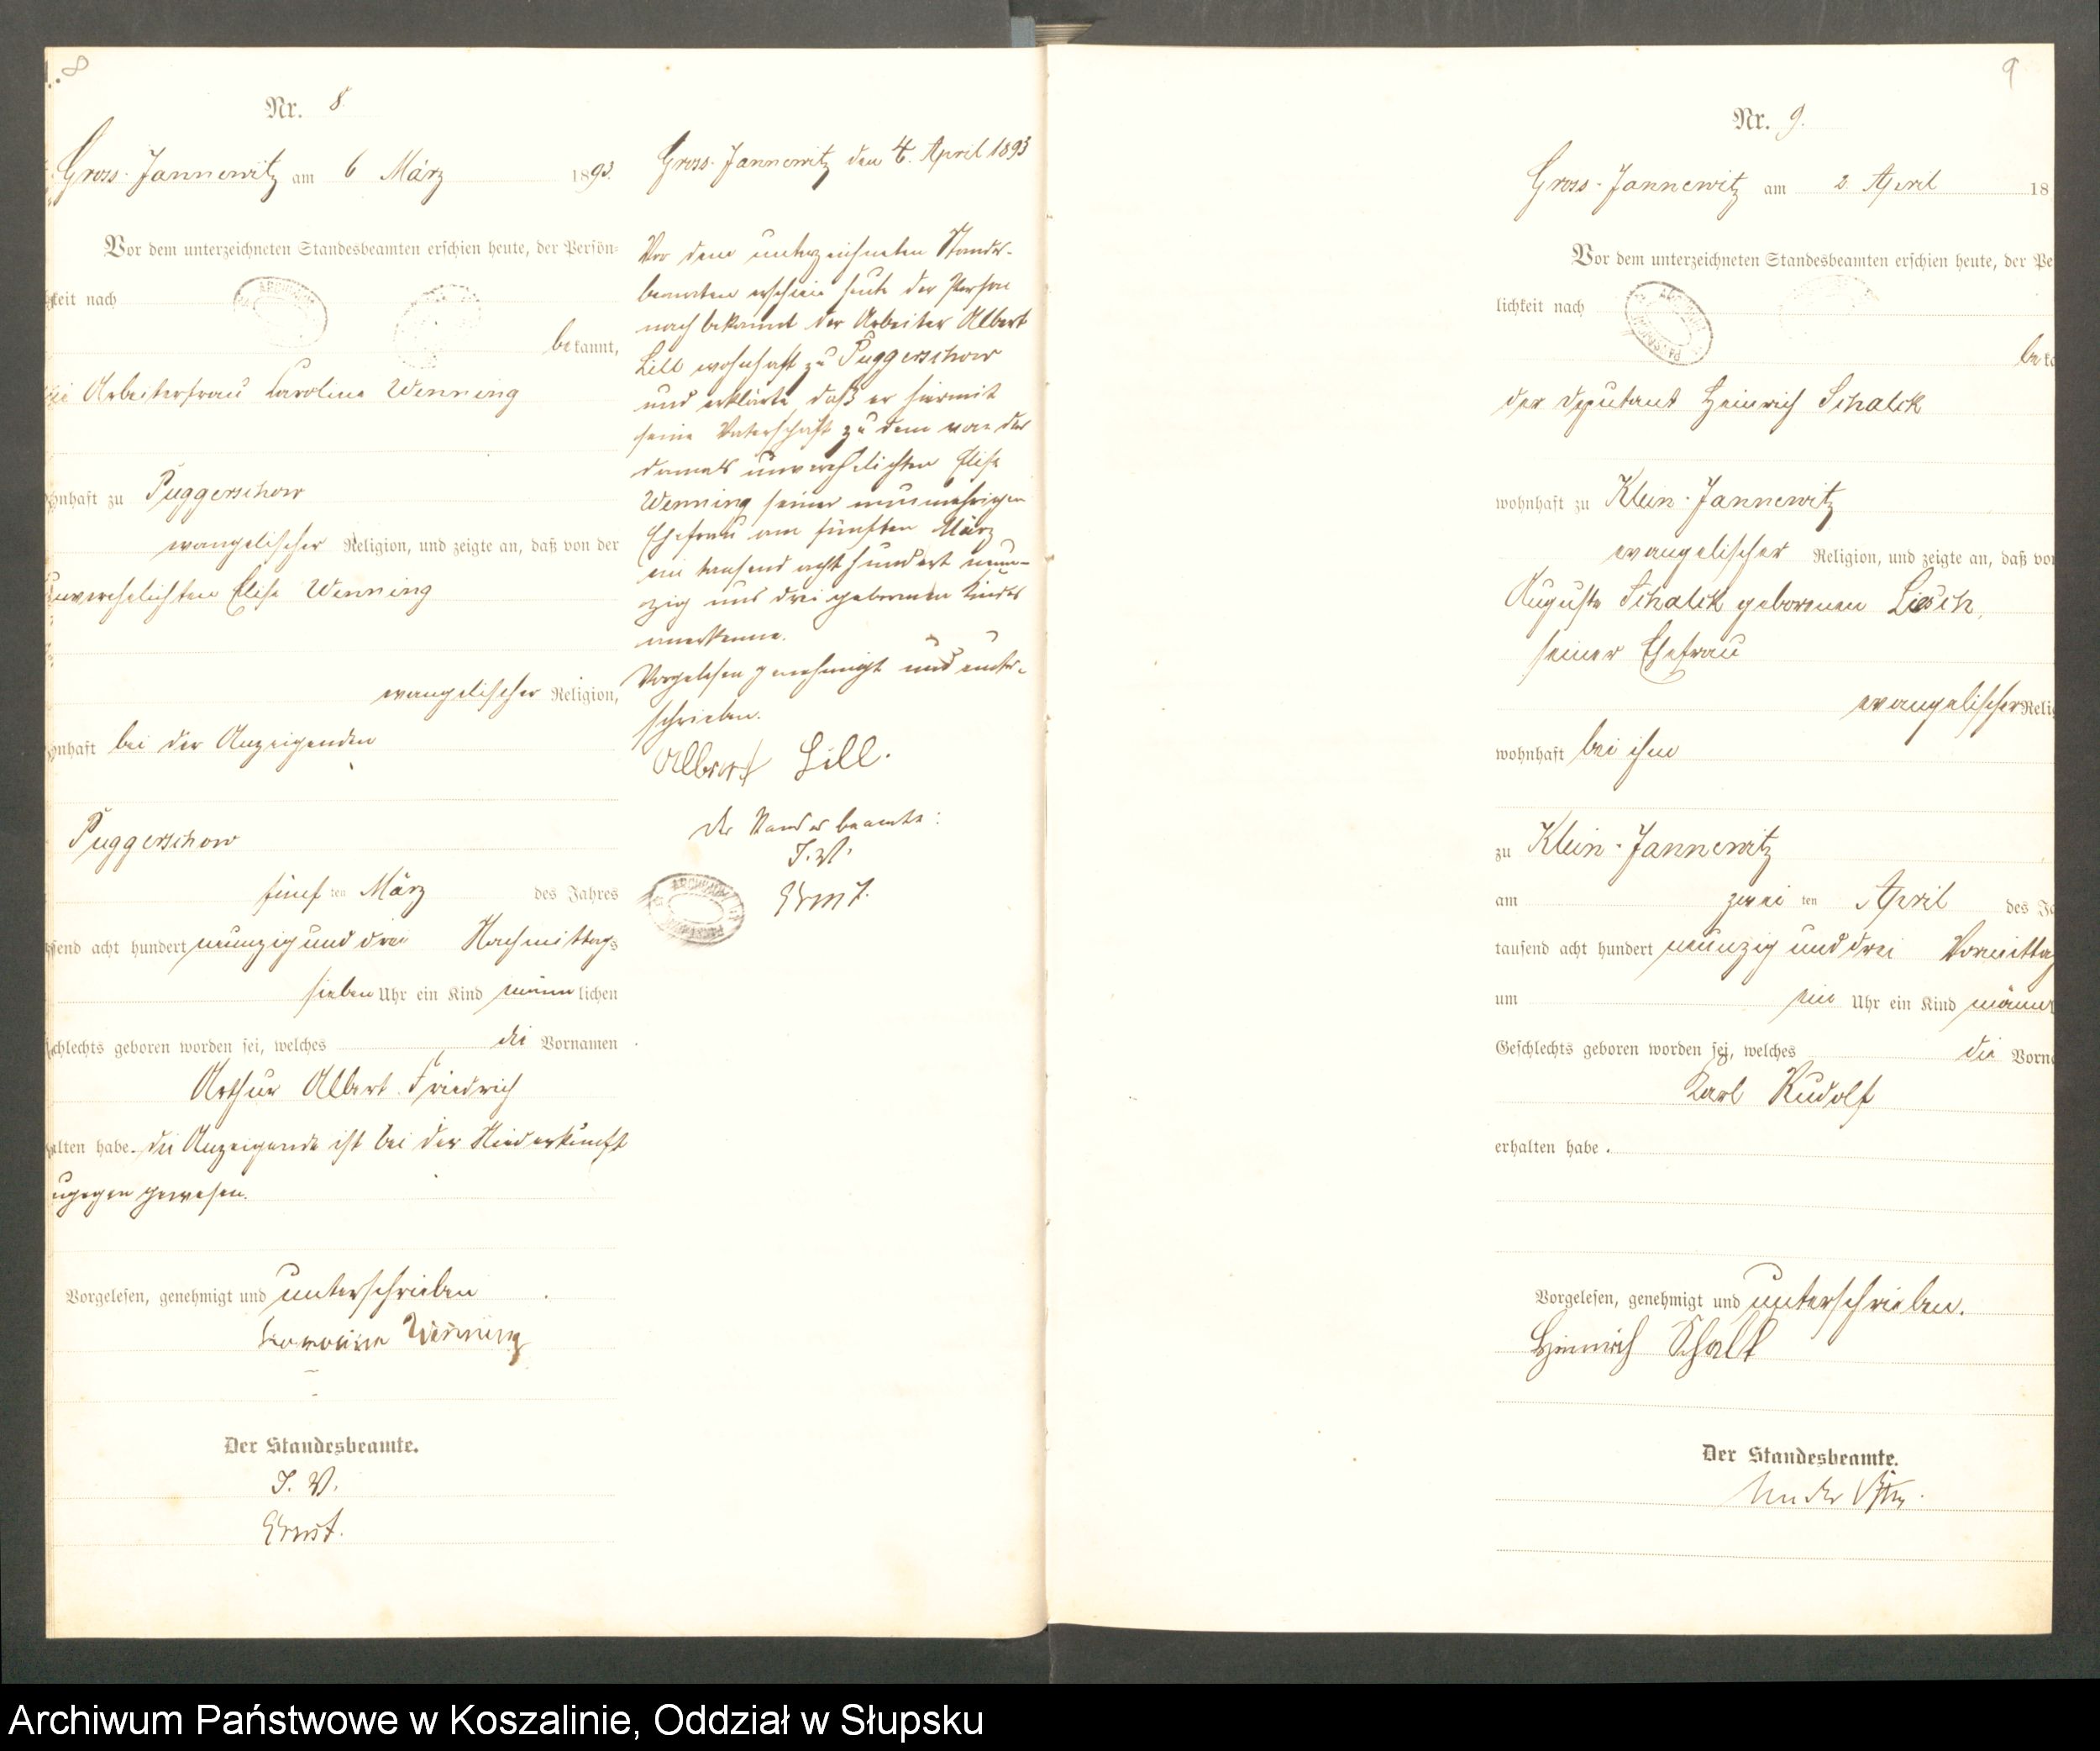 8
Nr. 8
Gross-Jannewitz am 6 März 1893.
Vor dem unterzeichneten Standesbeamten erschien heute, der Persön-
keit nach
bekannt,
die Arbeiterfrau Caroline Wenning
nhaft zu Puggerschow
evangelischer Religion, und zeigte an, daß von der
unverehelichten Elise Wenning
evangelischer Religion,
nhaft bei der Anzeigenden
Puggerschow
fünf ten März des Jahres
send acht hundert neunzig und drei Nachmittags
sieben Uhr ein Kind männlichen
chlechts geboren worden sei, welches die Vornamen
Arthur Albert Friedrich
alten habe. die Anzeigende ist bei der Niederkunft
zugegen gewesen.
Vorgelesen, genehmigt und unterschrieben
Karoline Wenning
Der Standesbeamte.
I. V.
Ernst.
Gross-Jannewitz den 4. April 1893
Vor dem unterzeichneten Standes-
beamten erschien heute der Person
nach bekannt der Arbeiter Albert
Lill wohnhaft zu Puggerschow
und erklärte daß er hiermit
seine Vaterschaft zu dem von der
damals unverehelichten Elise
Wenning seiner nunmehrigen
Ehefrau am fünften März
ein tausend acht hundert neun-
zig und drei geborenen Kindes
anerkenne.
Vorgelesen genehmigt und unter-
schrieben.
Albert Lill.
Der Standesbeamte:
I. V.
Ernst.
9
Nr. 9.
Gross-Jannewitz am 2. April 18
Vor dem unterzeichneten Standesbeamten erschien heute, der Pe
lichkeit nach
beka
der Deputant Heinrich Schalck
wohnhaft zu Klein-Jannewitz
evangelischer Religion, und zeigte an, daß von
Auguste Schalck geborenen Liesch,
seiner Ehefrau
evangelischer Relig
wohnhaft bei ihm
zu Klein-Jannewitz
am zwei ten April des Ja
tausend acht hundert neunzig und drei Vormittag
um ein Uhr ein Kind männl
Geschlechts geboren worden sei, welches die Vorna
Karl Rudolf
erhalten habe.
Vorgelesen, genehmigt und unterschrieben.
Heinrich Schalk
Der Standesbeamte.
Archiwum Państwowe w Koszalinie, Oddział w Słupsku